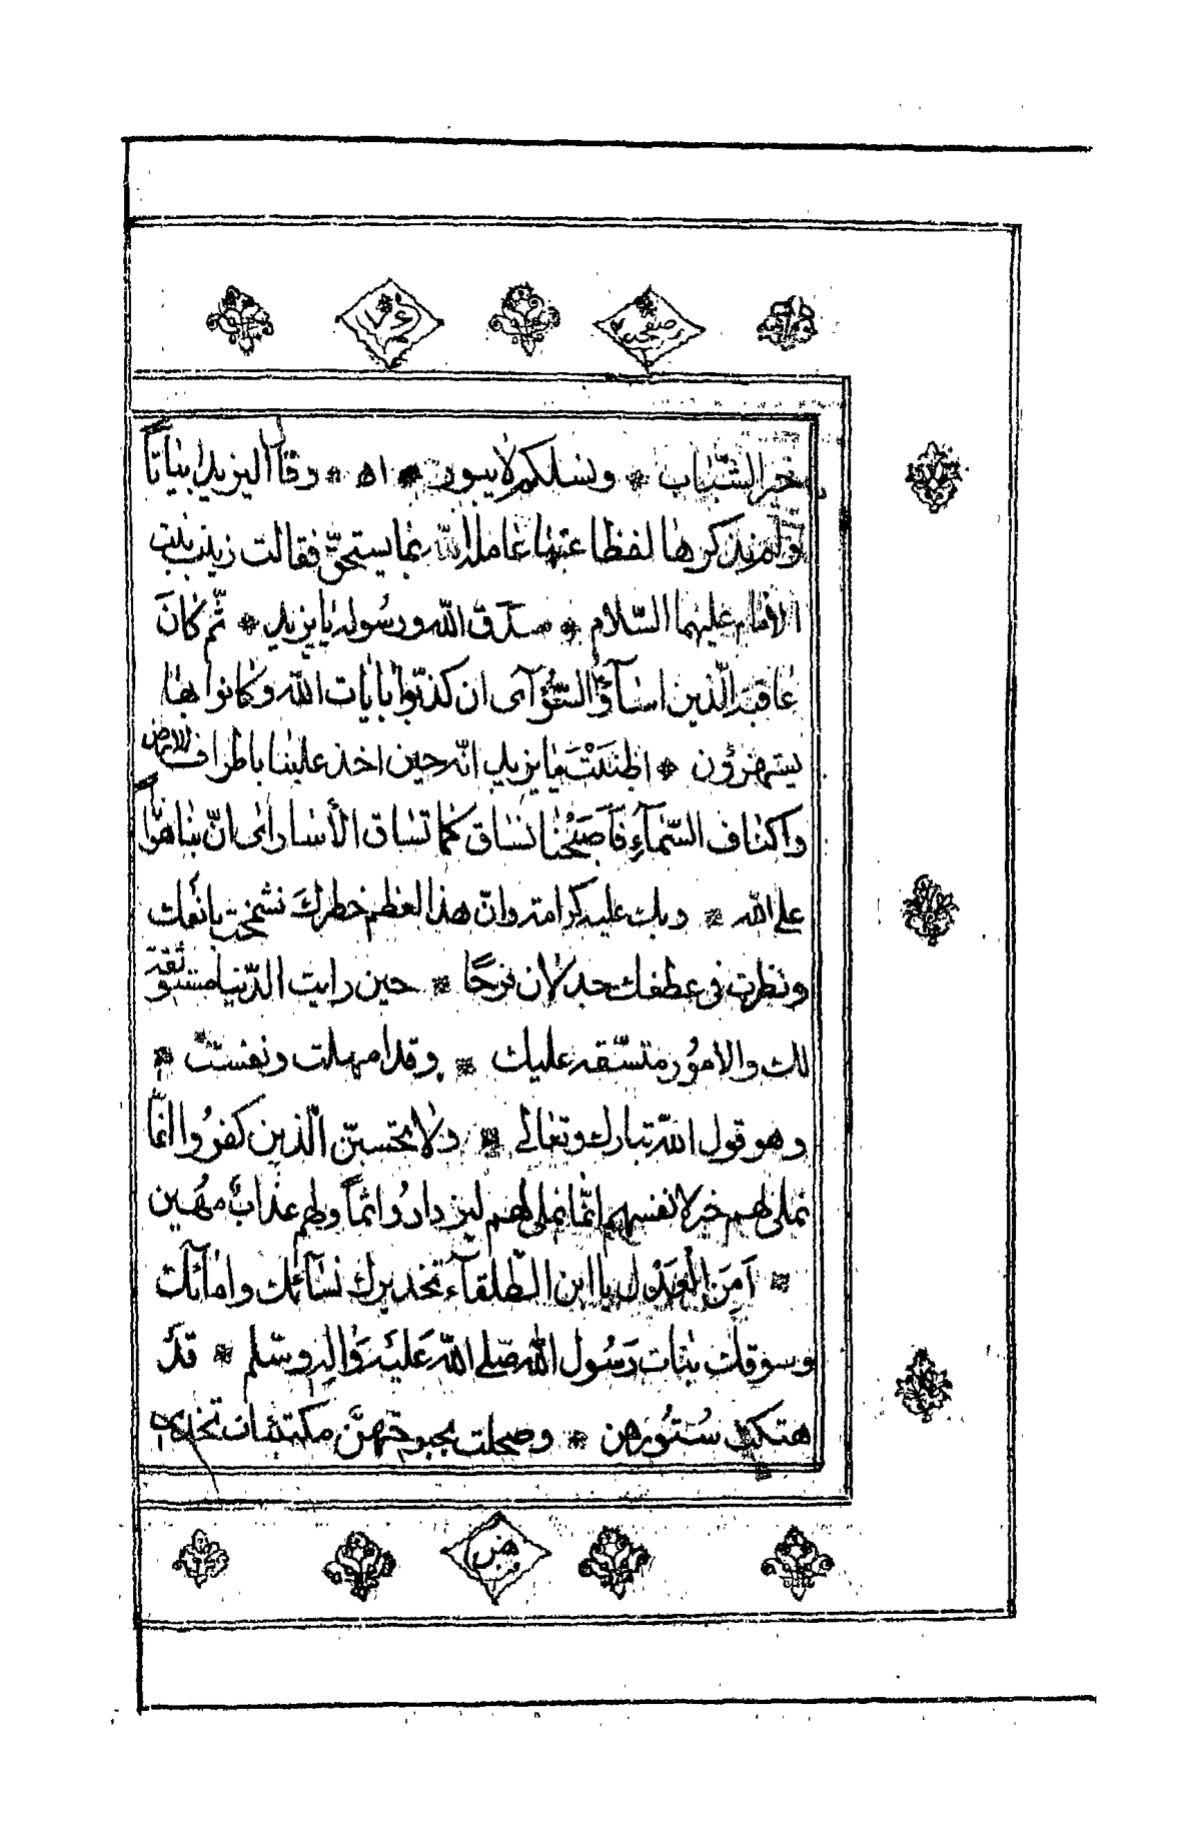 خر الشباب * ونسلكم لا يبور * اه * وقال اليزيد ابياتا
ولم نذكرها لفظا عتها عامله الله بما يستحق فقالت زينب بنت
الامام عليهما السلام * صدق الله ورسوله يا يزيد * ثم كان
عاقبة الذين اسآؤا السؤآى ان كذبوا بايات الله وكانوا بها
يستهزؤن * اظننت يا يزيد انه حين اخذ علينا باطراف الارض
واكناف السمآء فاصبحنا نساق كما تساق الأسارى ان بنا هوانا
على الله * وبك عليه كرامة وان هذا لعظم خطرك نشمخت بانفك
ونظرت فى عطفك جذلان فرحا * حين رايت الدنيا مستوثقة
لك والامور متسقه عليك * وقد امهلت ونفست *
وهو قول الله تبارك وتعالى * ولا يحسبن الذين كفروا انما
نملى لهم خير لانفسهم انما نملى لهم ليزدادوا اثما ولهم عذاب مهين
* أمن العدل يا ابن الطلقآء تخديرك نسآئك وامائك
وسوقك بنات رسول الله صلى الله عليه واله وسلم * قد
هتكت ستورهن * وصحلت بحبوحتهن مكتئبات تخدى